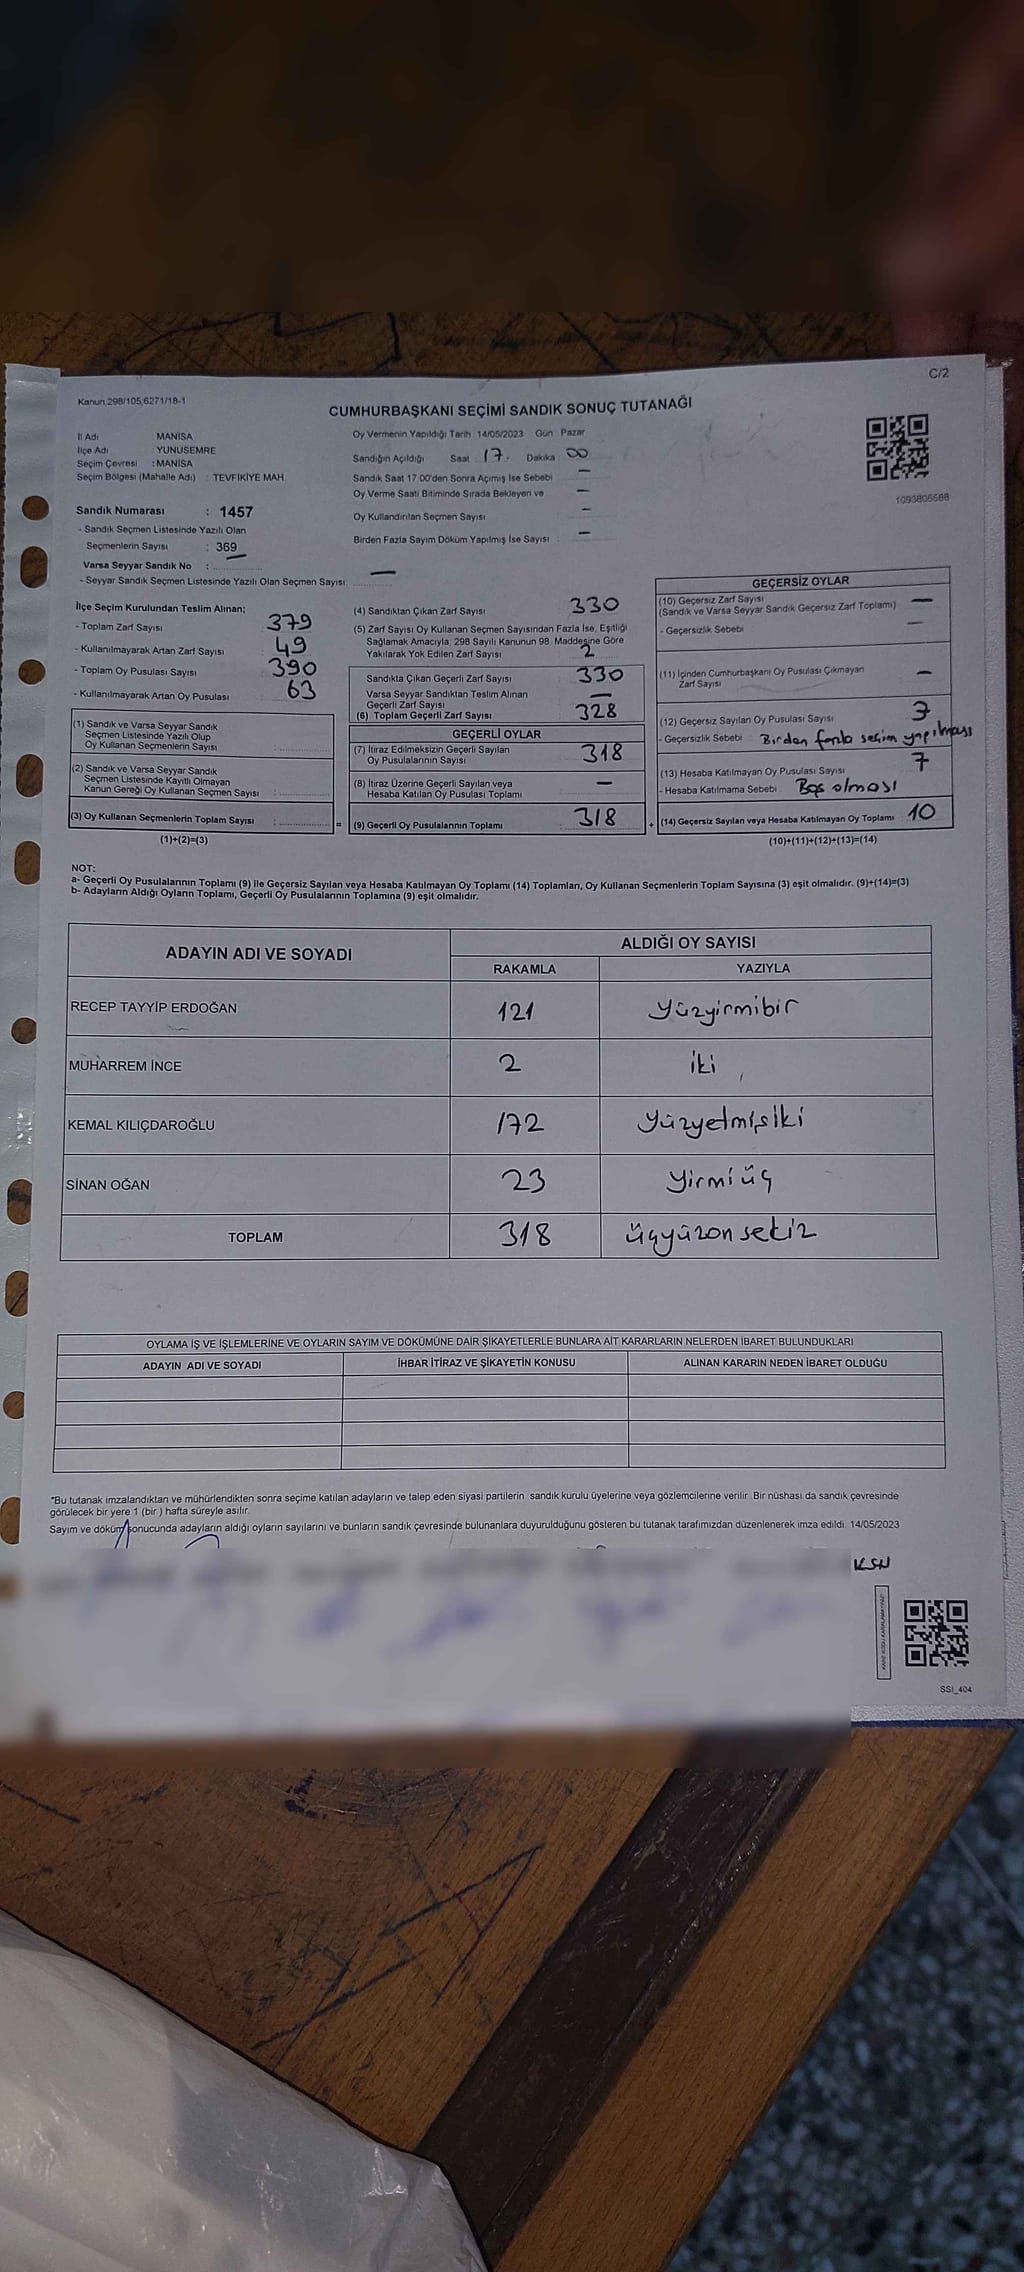 C/2
Kanun 298/105,6271/18-1
CUMHURBAŞKANI SEÇİMİ SANDIK SONUÇ TUTANAĞI
İl Adı : MANİSA
İlçe Adı : YUNUSEMRE
Seçim Çevresi : MANİSA
Seçim Bölgesi (Mahalle Adı) : TEVFİKİYE MAH
Sandık Numarası : 1457
- Sandık Seçmen Listesinde Yazılı Olan
Seçmenlerin Sayısı : 369
Varsa Seyyar Sandık No :
- Seyyar Sandık Seçmen Listesinde Yazılı Olan Seçmen Sayısı: —
Oy Vermenin Yapıldığı Tarih : 14/05/2023 Gün Pazar
Sandığın Açıldığı Saat : 17. Dakika 00
Sandık Saat 17:00'den Sonra Açımış İse Sebebi —
Oy Verme Saati Bitiminde Sırada Bekleyen ve —
Oy Kullandırılan Seçmen Sayısı —
Birden Fazla Sayım Döküm Yapılmış İse Sayısı —
1093805588
İlçe Seçim Kurulundan Teslim Alınan;
- Toplam Zarf Sayısı 379
- Kullanılmayarak Artan Zarf Sayısı : 49
- Toplam Oy Pusulası Sayısı : 390
- Kullanılmayarak Artan Oy Pusulası : 63
(1) Sandık ve Varsa Seyyar Sandık
Seçmen Listesinde Yazılı Olup
Oy Kullanan Seçmenlerin Sayısı :
(2) Sandık ve Varsa Seyyar Sandık
Seçmen Listesinde Kayıtlı Olmayan
Kanun Gereği Oy Kullanan Seçmen Sayısı :
(3) Oy Kullanan Seçmenlerin Toplam Sayısı : =
(1)+(2)=(3)
(4) Sandıktan Çıkan Zarf Sayısı 330
(5) Zarf Sayısı Oy Kullanan Seçmen Sayısından Fazla İse, Eşitliği
Sağlamak Amacıyla, 298 Sayılı Kanunun 98. Maddesine Göre
Yakılarak Yok Edilen Zarf Sayısı 2
Sandıkla Çıkan Geçerli Zarf Sayısı 330
Varsa Seyyar Sandıktan Teslim Alınan
Geçerli Zarf Sayısı —
(6) Toplam Geçerli Zarf Sayısı 328
GEÇERLİ OYLAR
(7) İtiraz Edilmeksizin Geçerli Sayılan
Oy Pusulalarının Sayısı : 318
(8) İtiraz Üzerine Geçerli Sayılan veya
Hesaba Katılan Oy Pusulası Toplamı : —
(9) Geçerli Oy Pusulalarının Toplamı : 318 +
GEÇERSİZ OYLAR
(10) Geçersiz Zarf Sayısı —
(Sandık ve Varsa Seyyar Sandık Geçersiz Zarf Toplamı)
- Geçersizlik Sebebi —
(11) İçinden Cumhurbaşkanı Oy Pusulası Çıkmayan —
Zarf Sayısı
(12) Geçersiz Sayılan Oy Pusulası Sayısı 3
- Geçersizlik Sebebi Birden fazla seçim yapılması
(13) Hesaba Katılmayan Oy Pusulası Sayısı 7
- Hesaba Katılmama Sebebi : Boş olması
(14) Geçersiz Sayılan veya Hesaba Katılmayan Oy Toplamı : 10
(10)+(11)+(12)+(13)=(14)
NOT:
a- Geçerli Oy Pusulalarının Toplamı (9) ile Geçersiz Sayılan veya Hesaba Katılmayan Oy Toplamı (14) Toplamları, Oy Kullanan Seçmenlerin Toplam Sayısına (3) eşit olmalıdır. (9)+(14)=(3)
b- Adayların Aldığı Oyların Toplamı, Geçerli Oy Pusulalarının Toplamına (9) eşit olmalıdır.
ADAYIN ADI VE SOYADI ALDIĞI OY SAYISI
RAKAMLA YAZIYLA
RECEP TAYYİP ERDOĞAN 121 Yüzyirmibir
MUHARREM İNCE 2 iki
KEMAL KILIÇDAROĞLU 172 Yüzyetmişiki
SİNAN OĞAN 23 Yirmiüç
TOPLAM 318 üçyüzonsekiz
OYLAMA İŞ VE İŞLEMLERİNE VE OYLARIN SAYIM VE DÖKÜMÜNE DAİR ŞİKAYETLERLE BUNLARA AİT KARARLARIN NELERDEN İBARET BULUNDUKLARI
ADAYIN ADI VE SOYADI İHBAR İTİRAZ VE ŞİKAYETİN KONUSU ALINAN KARARIN NEDEN İBARET OLDUĞU
*Bu tutanak imzalandıktan ve mühürlendikten sonra seçime katılan adayların ve talep eden siyasi partilerin sandık kurulu üyelerine veya gözlemcilerine verilir. Bir nüshası da sandık çevresinde
görülecek bir yere 1 (bir ) hafta süreyle asılır.
Sayım ve döküm sonucunda adayların aldığı oyların sayılarını ve bunların sandık çevresinde bulunanlara duyurulduğunu gösteren bu tutanak tarafımızdan düzenlenerek imza edildi. 14/05/2023
SSI_404